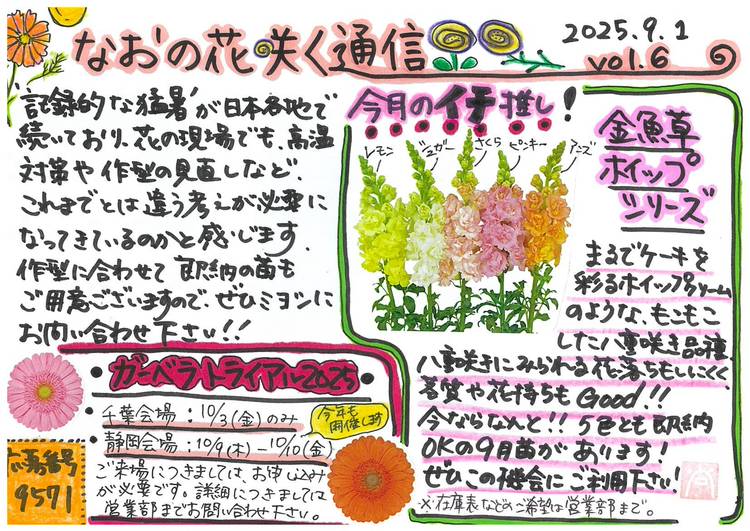 なおの花咲く通信
2025.9.1
vol.6
「記録的な猛暑」が日本各地で
続いており、花の現場でも、高温
対策や作型の見直しなど、
これまでとは違う考えが必要に
なってきているのかと感じます。
作型に合わせて即納の苗も
ご用意ございますので、ぜひミヨシに
お問い合わせ下さい!!
今月のイチ推し!
レモン
シュガー
さくら
ピンキー
アンズ
金魚草
ホイップ
シリーズ
まるでケーキを
彩るホイップクリーム
のような、もこもこ
した八重咲き品種。
八重咲きにみられる花落ちもしにくく、
茎質や花持ちもGood!!
今ならなんと!!5色とも即納
OKの9月苗があります!
ぜひこの機会にご利用下さい!
※在庫表などのご希望は営業部まで。
・ガーベラトライアル2025・
・千葉会場:10/3(金)のみ
・静岡会場:10/9(木)-10/10(金)
今年も
開催します
ご来場につきましては、お申し込み
が必要です。詳細につきましては
営業部までお問い合わせ下さい。
応募番号
9571